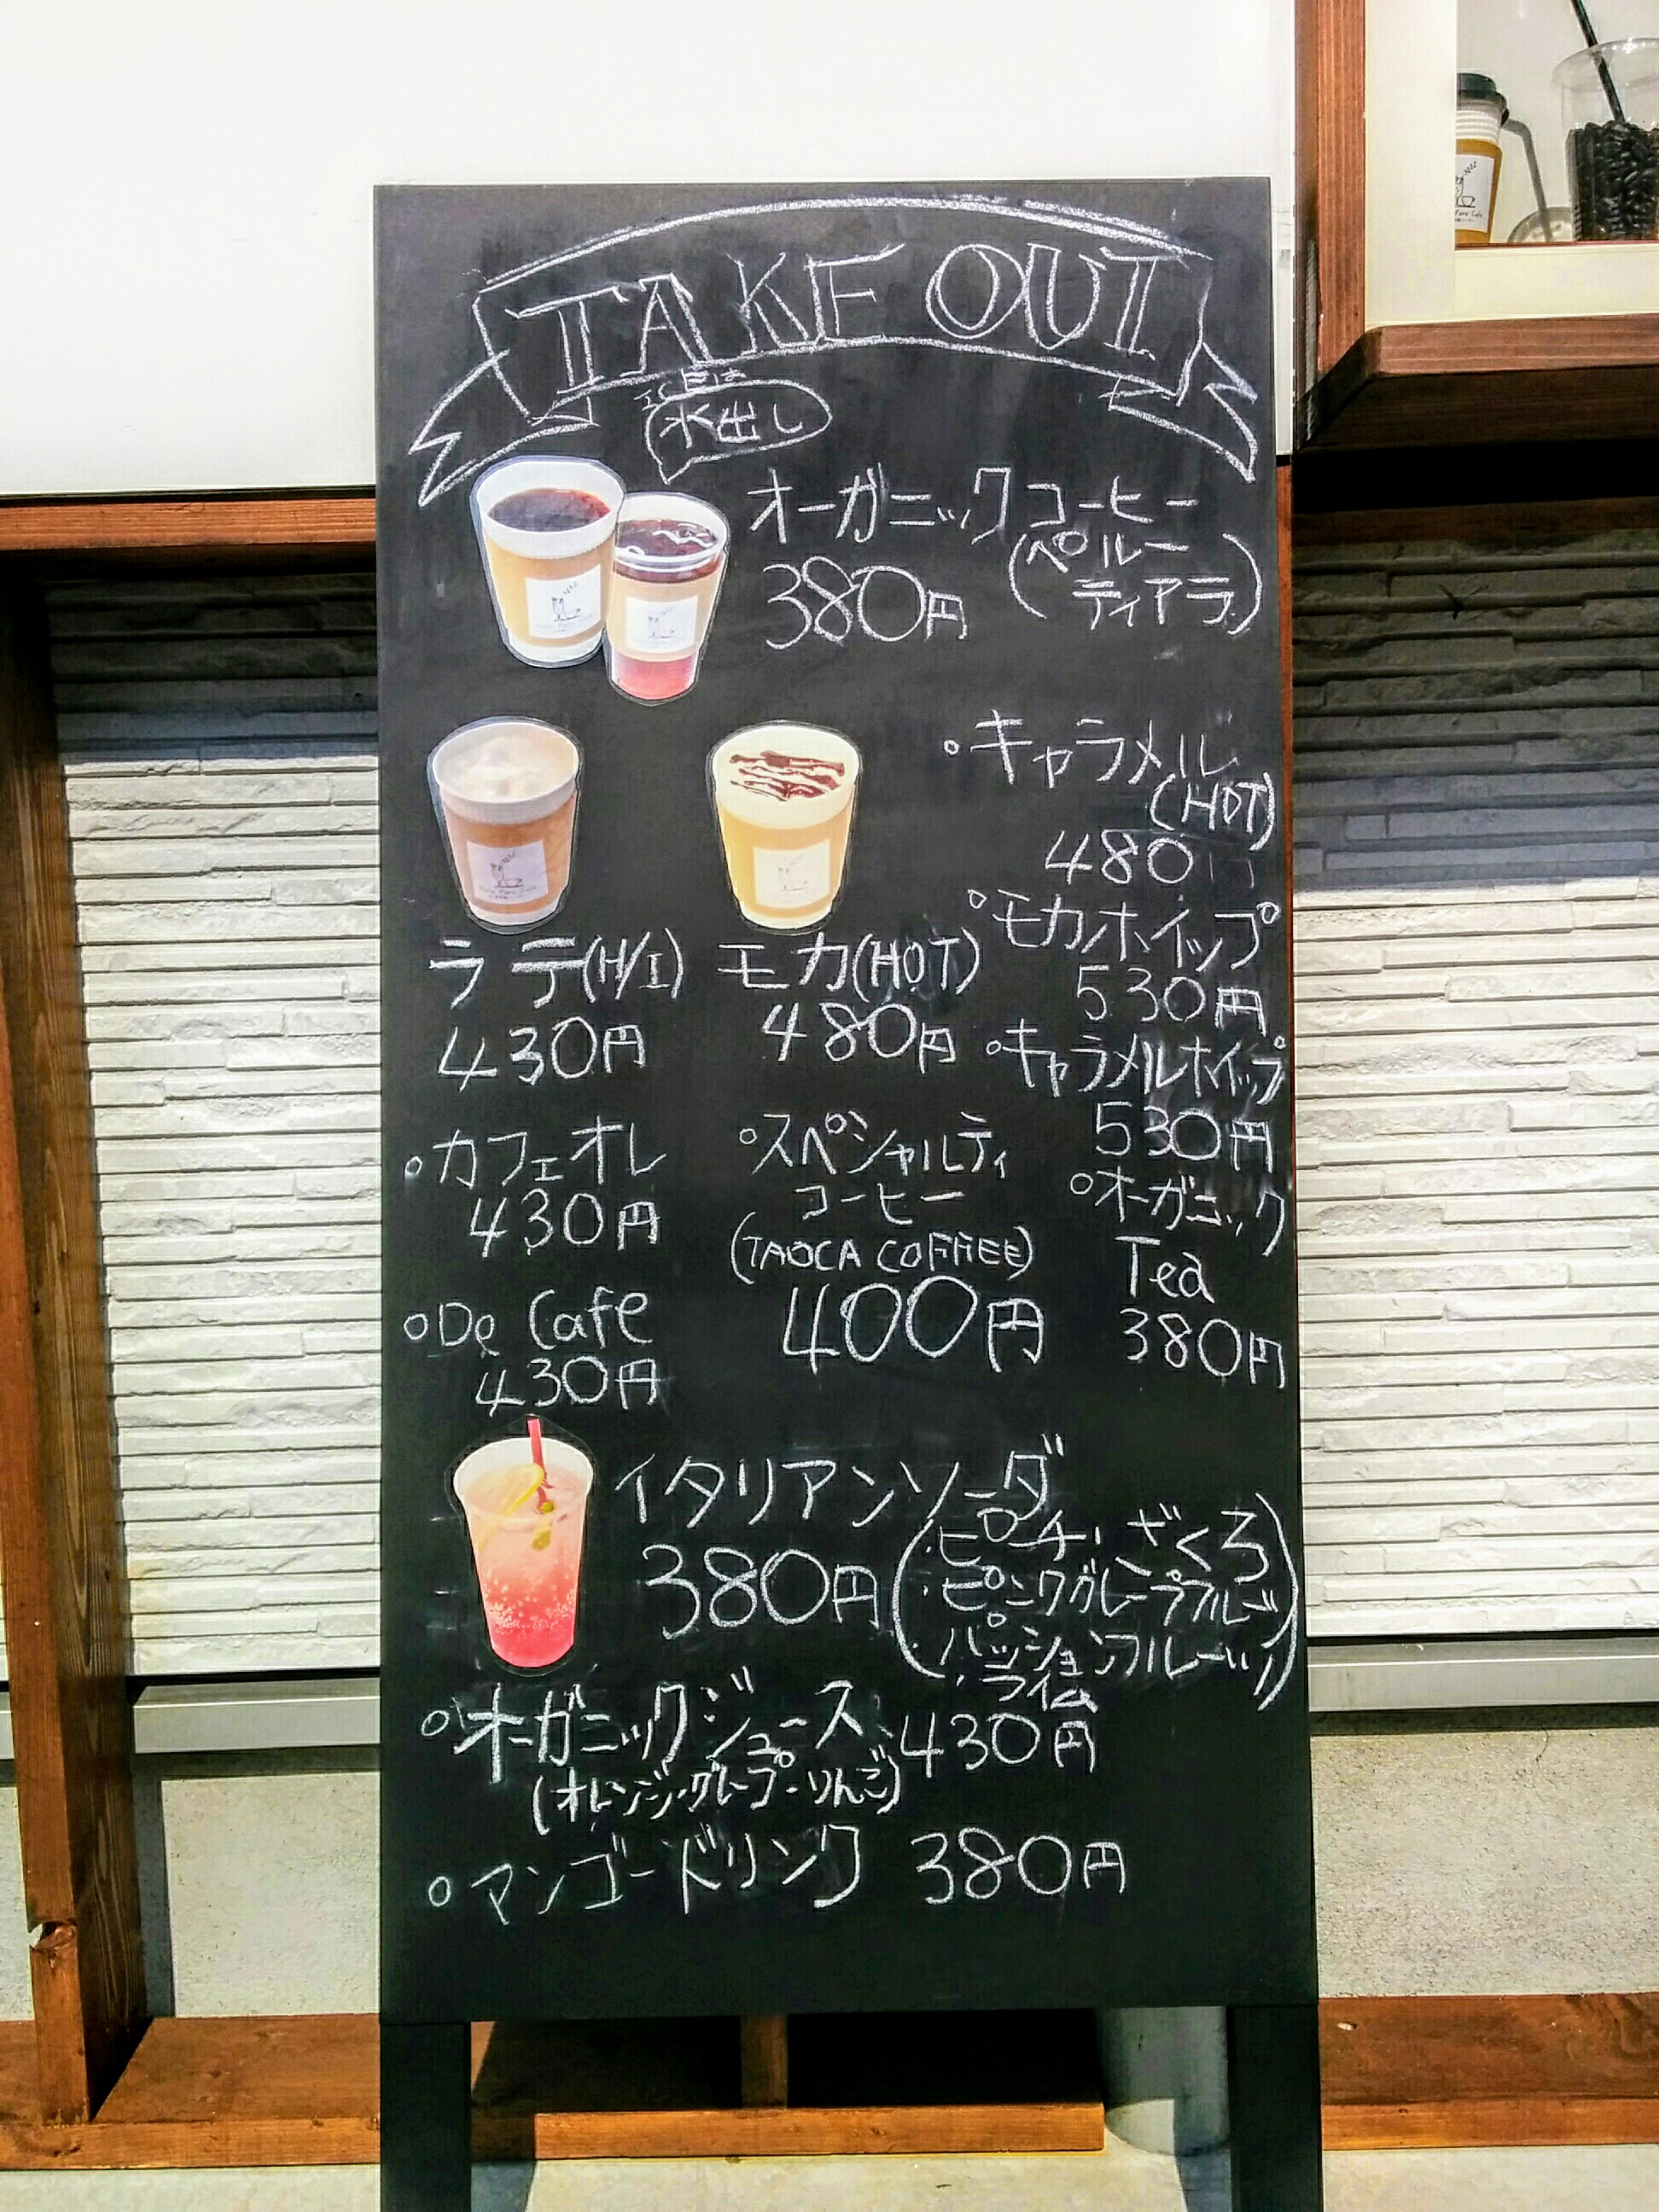 TAKE OUT
水出し
オーガニックコーヒー
380円
(ペルー
ティアラ)
ラテ(H/I)
430円
モカ(HOT)
480円
。キャラメル
(HOT)
480円
。モカホイップ
530円
。キャラメルホイップ
530円
。カフェオレ
430円
。スペシャルティ
コーヒー
(TAOCA COFFEE)
400円
。オーガニック
Tea
380円
。De Cafe
430円
イタリアンソーダ
380円
(・ピーチ・ざくろ
・ピンクグレープフルーツ
・パッションフルーツ
・ライム)
。オーガニックジュース 430円
(オレンジ・グレープ・りんご)
。マンゴードリンク 380円